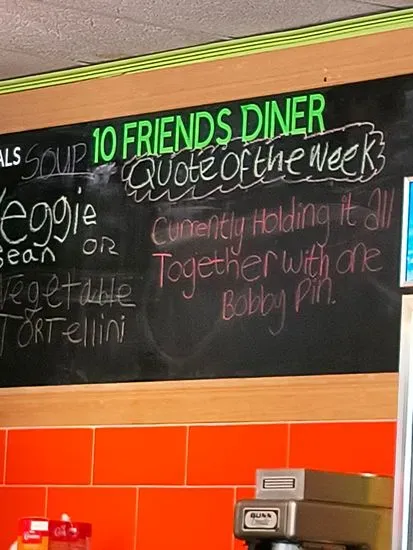 ALS SOUP
Veggie
Bean OR
Vegetable
TORTellini
10 FRIENDS DINER
Quote of the week
Currently Holding it all
Together with one
Bobby Pin.
BUNN